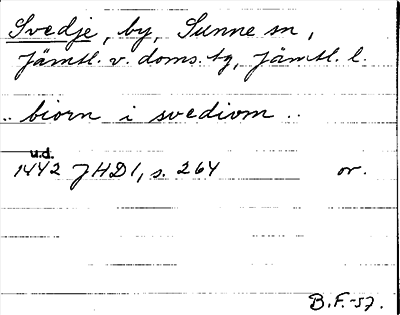 Svedje, by, Sunne sn,
Jämtl. v. doms. tg, Jämtl. l.
.. biorn i svediom ..
u.d.
1442 JHD 1, s. 264 or.
B.F.-57.